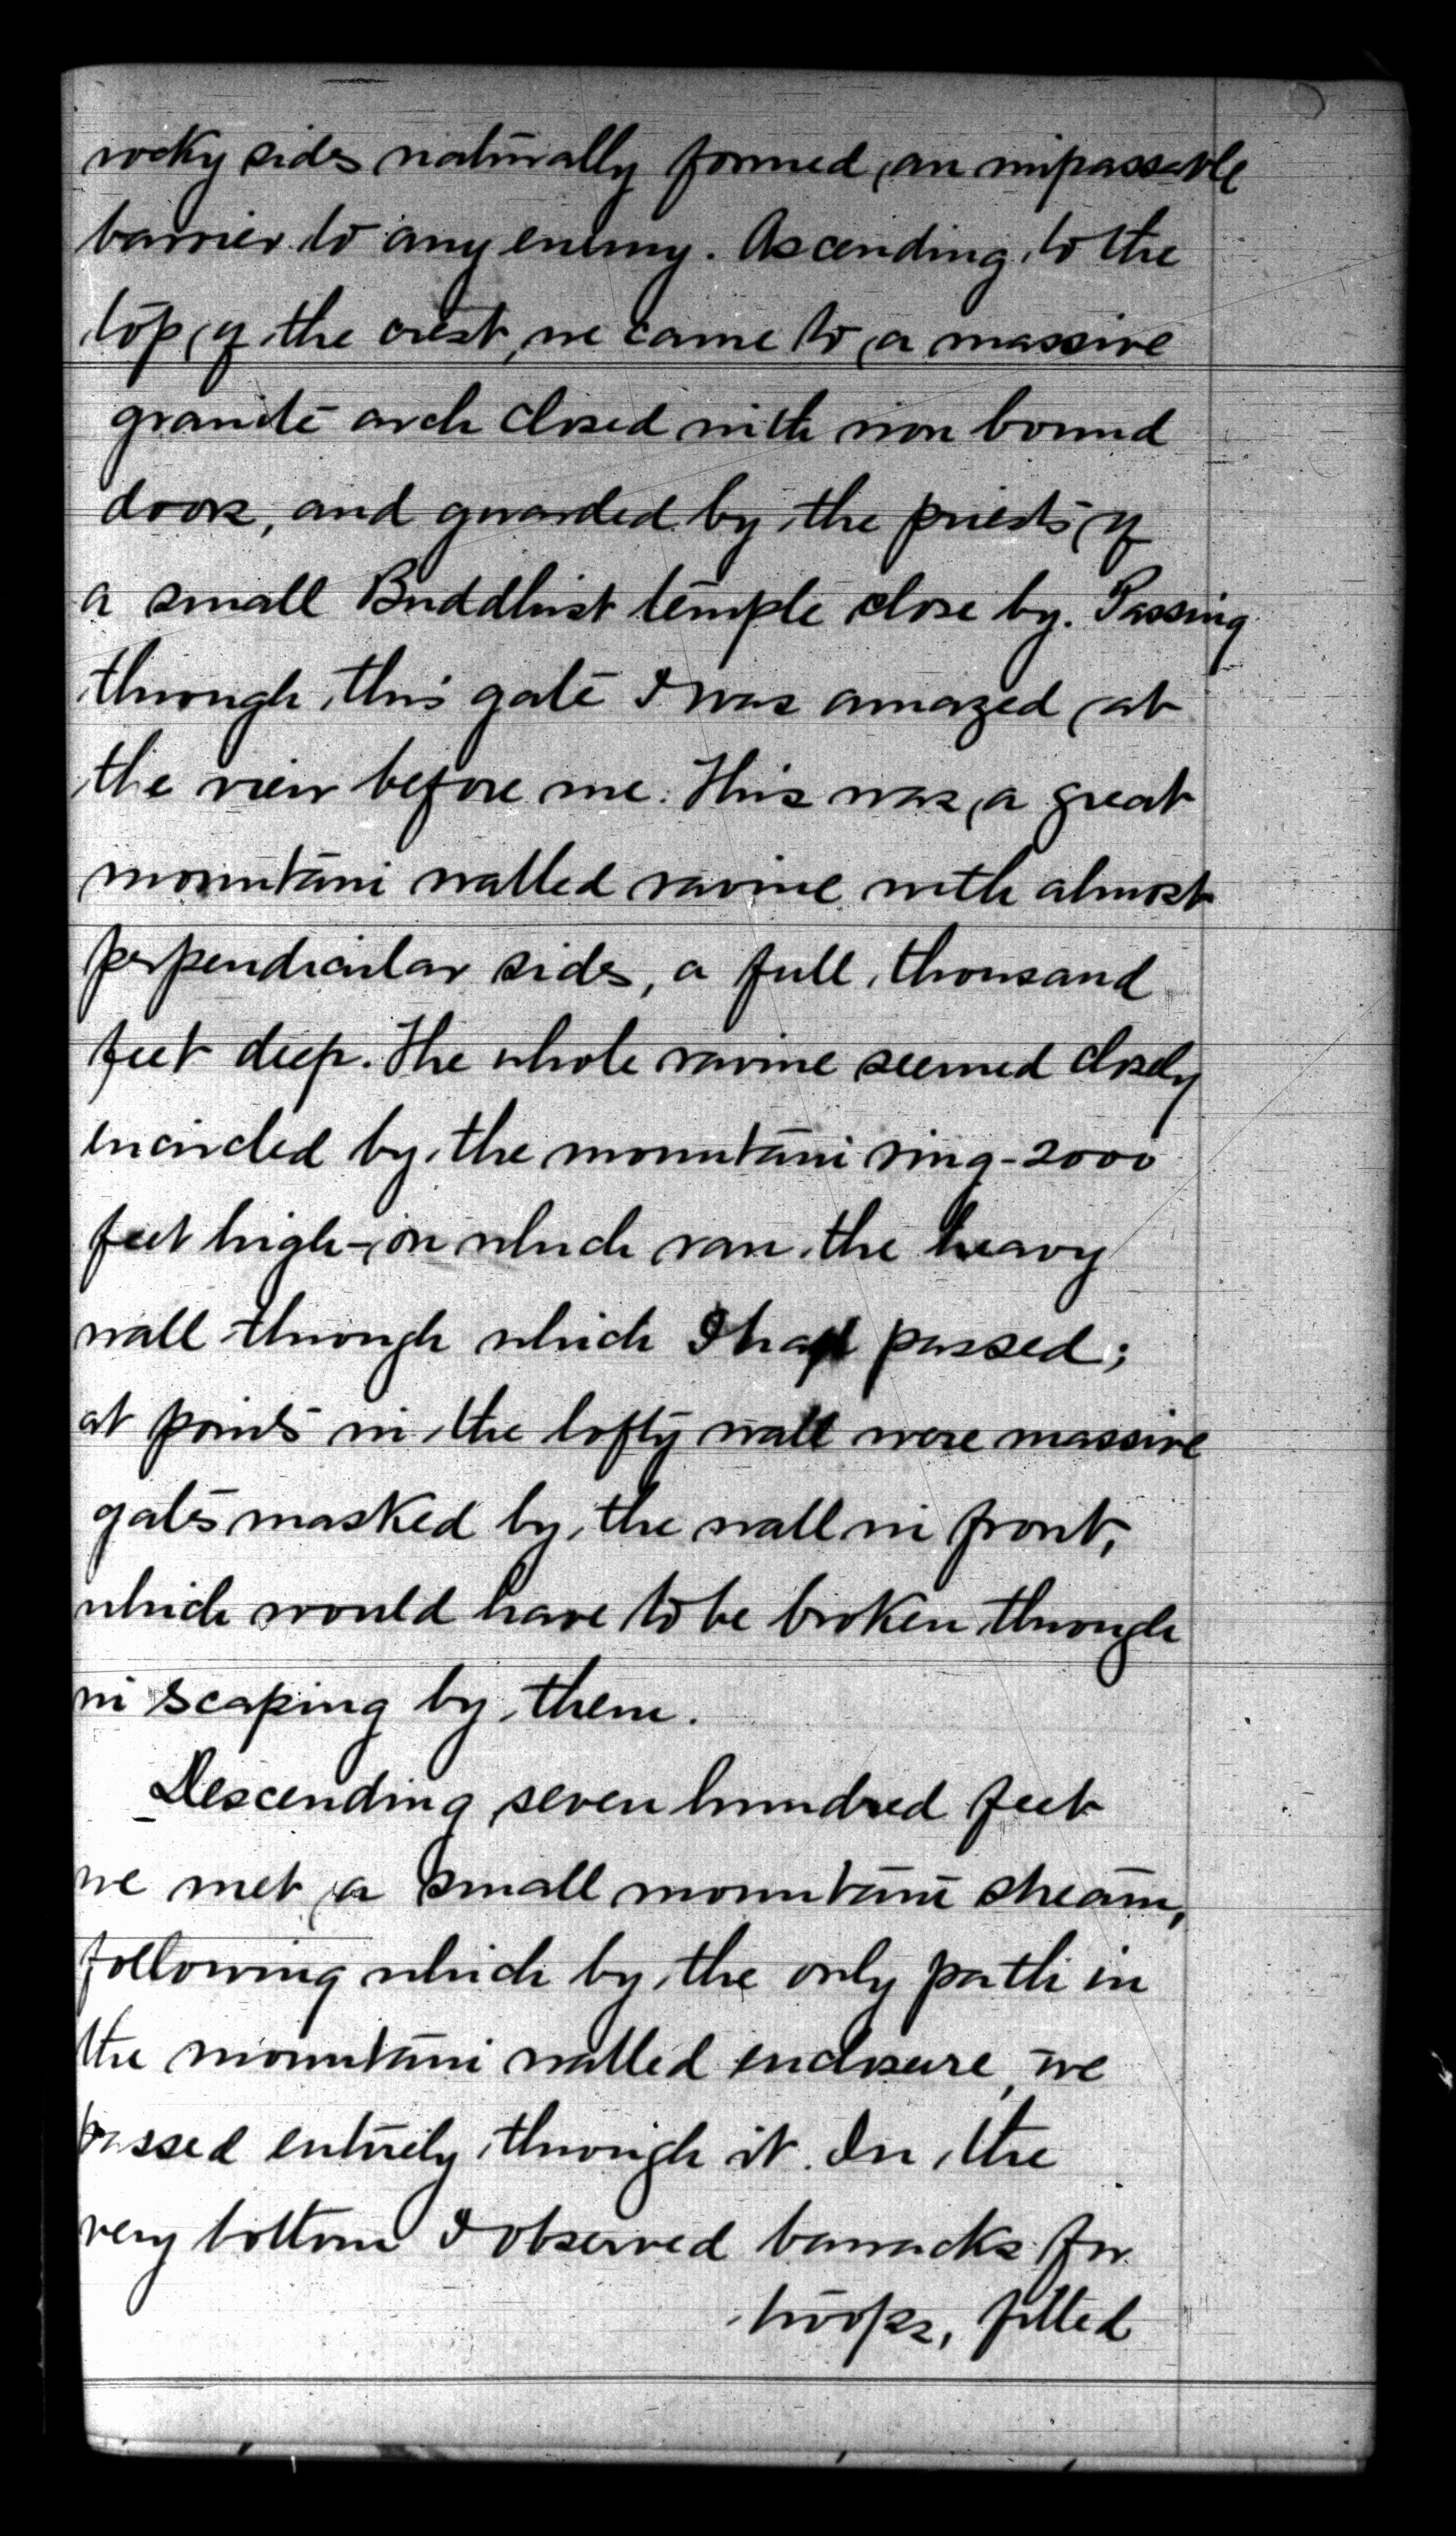 rocky sides naturally formed an impassable
barrier to any enemy. Ascending to the
top of the crest, we came to a massive
granite arch closed with iron bound
doors, and guarded by the priests of
a small Buddhist temple close by. Passing
through this gate I was amazed at
the view before me. This was a great
mountain walled ravine with almost
perpendicular sides, a full thousand
feet deep. The whole ravine seemed closely
encircled by the mountain ring - 2000
feet high - on which ran the heavy
wall through which I had passed;
at points in the lofty wall were massive
gates masked by the wall in front,
which would have to be broken through
in scaping by them.
Descending seven hundred feet
we met a small mountain stream,
following which by the only path in
the mountain walled enclosure, we
passed entirely through it. In the
very bottom I observed barracks for
troops, fitted